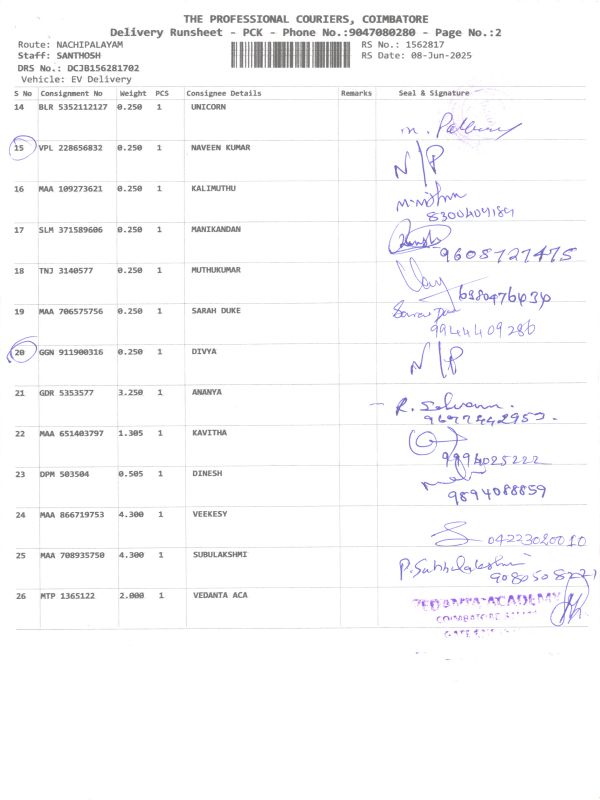 THE PROFESSIONAL COURIERS, COIMBATORE
Delivery Runsheet - PCK - Phone No.:9047080280 - Page No.:2
Route: NACHIPALAYAM RS No.: 1562817
Staff: SANTHOSH RS Date: 08-Jun-2025
DRS No.: DCJB156281702
Vehicle: EV Delivery
S No Consignment No Weight PCS Consignee Details Remarks Seal & Signature
14 BLR 5352112127 0.250 1 UNICORN
15 VPL 228656832 0.250 1 NAVEEN KUMAR N/P
16 MAA 109273621 0.250 1 KALIMUTHU
17 SLM 371589606 0.250 1 MANIKANDAN 9608727475
18 TNJ 3140577 0.250 1 MUTHUKUMAR
19 MAA 706575756 0.250 1 SARAH DUKE
9944409286
20 GGN 911900316 0.250 1 DIVYA N/P
21 GDR 5353577 3.250 1 ANANYA
22 MAA 651403797 1.305 1 KAVITHA
9994025222
23 DPM 503504 0.505 1 DINESH
9894088859
24 MAA 866719753 4.300 1 VEEKESY
04223020010
25 MAA 708935750 4.300 1 SUBULAKSHMI P. Subbulakshmi
26 MTP 1365122 2.000 1 VEDANTA ACA
VEDANTA ACADEMY
COIMBATORE